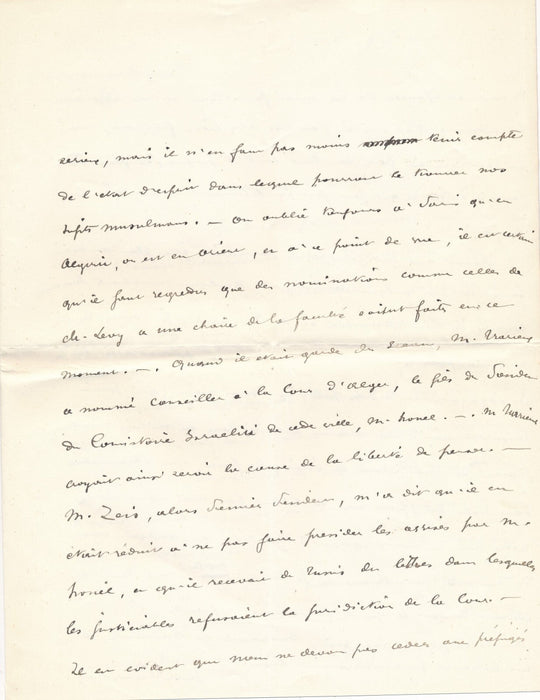 serieux, mais il n'en faut pas moins tenir compte
de l'etat d'esprit dans lequel pourront se trouver nos
sujets musulmans. — On oublie toujours à Paris qu'en
Algérie, on est en Orient, et à ce point de vue, il est certain
qu'il faut regretter que des nominations comme celles de
Mr. Levy a une chaire de la faculté soient faites en ce
moment. —. Quand il était garde des Sceaux, M. Trarieux
a nommé conseiller à la Cour d'Alger, le fils du Président
du Consistoire Israelite de cette ville, M. Honel. —. M Trarieux
croyait ainsi servir la cause de la liberté de penser. —
M. Zeis, alors Premier Président, m'a dit qu'il en
était réduit à ne pas faire presider les assises par M.
Honel, et qu'il recevait de Tunis des lettres dans lesquelles
les justiciables refusaient la juridiction de la Cour. —
Il est evident que nous ne devons pas ceder aux préjugés